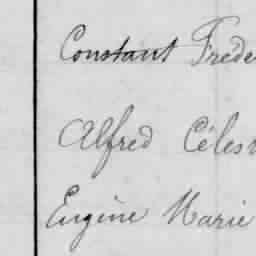 Constant Frede
Alfred Céles
Eugène Marie